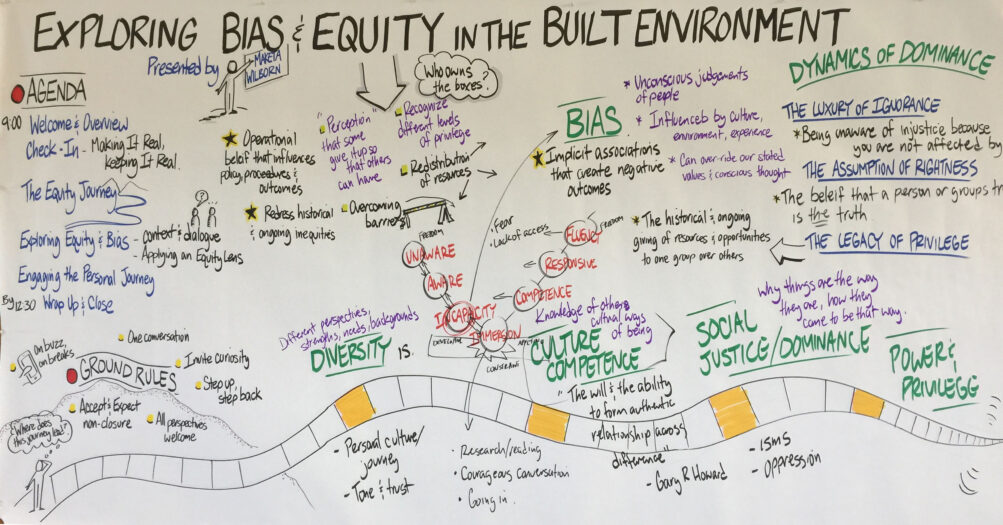 EXPLORING BIAS & EQUITY IN THE BUILT ENVIRONMENT
Presented by
MAKETA
WILBORN
AGENDA
9:00 Welcome & Overview
Check-In - Making It Real,
keeping It Real.
The Equity Journey
Exploring Equity & Bias - Context & dialogue
- Applying an Equity Lens
Engaging the Personal Journey
By 12:30 Wrap Up & Close
On buzz,
on breaks
One conversation
GROUND RULES
Invite curiosity
Step up,
step back
Accept & Expect
non-closure
All perspectives
welcome
Where does
this journey lead?
Operational
belief that influences
policy, proceedures &
outcomes
Redress historical
& ongoing inequities
"Perception
that some
give it up so
that others
can have
Who owns
the boxes?
Recognize
different levels
of privilege
Redistribution
of resources
Overcoming
barriers
FREEDOM
UNAWARE
AWARE
INCAPACITY
IMMERSION
CONSTRAINT
COMPETENCE
RESPONSIVE
FLUENCY
FREEDOM
• Fear
• Lack of access
BIAS
Implicit associations
that create negative
outcomes
* Unconscious judgements
of people
* Influenced by culture,
environment, experience
* Can over-ride our stated
values & conscious thought
DYNAMICS OF DOMINANCE
THE LUXURY OF IGNORANCE
* Being unaware of injustice because
you are not affected by
THE ASSUMPTION OF RIGHTNESS
* The beleif that a person or groups
is the truth
THE LEGACY OF PRIVILEGE
* The historical & ongoing
giving of resources & opportunities
to one group over others
Different perspectives,
strengths, needs, backgrounds
DIVERSITY IS.
- Personal culture/
journey
- Tone & trust
Knowledge of others
cultural ways
of being
CULTURE
COMPETENCE
"The will & the ability
to form authentic
relationship across
difference"
- Gary R Howard
• Research/reading
• Courageous Conversation
• Going in.
Why things are the way
they are, how they
come to be that way.
SOCIAL
JUSTICE/DOMINANCE
- ISMS
- OPPRESSION
POWER &
PRIVILEGG